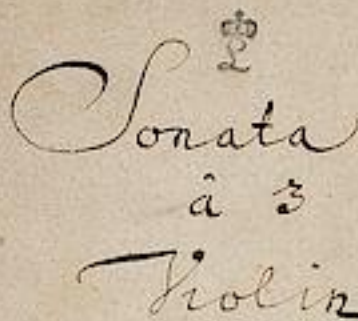 L
Sonata
â 3
Violin